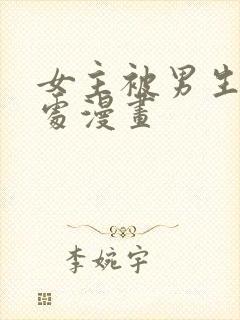 女主被男生
处漫畫
李婉宇